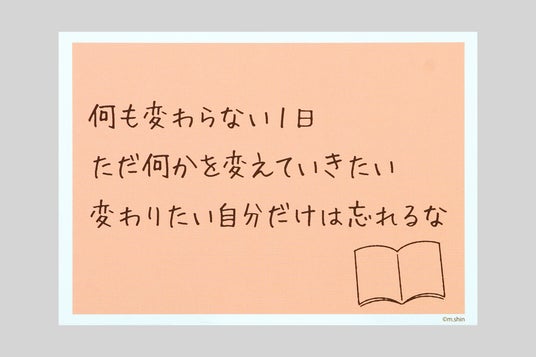 何も変わらない1日
ただ何かを変えていきたい
変わりたい自分だけは忘れるな
©m.shin